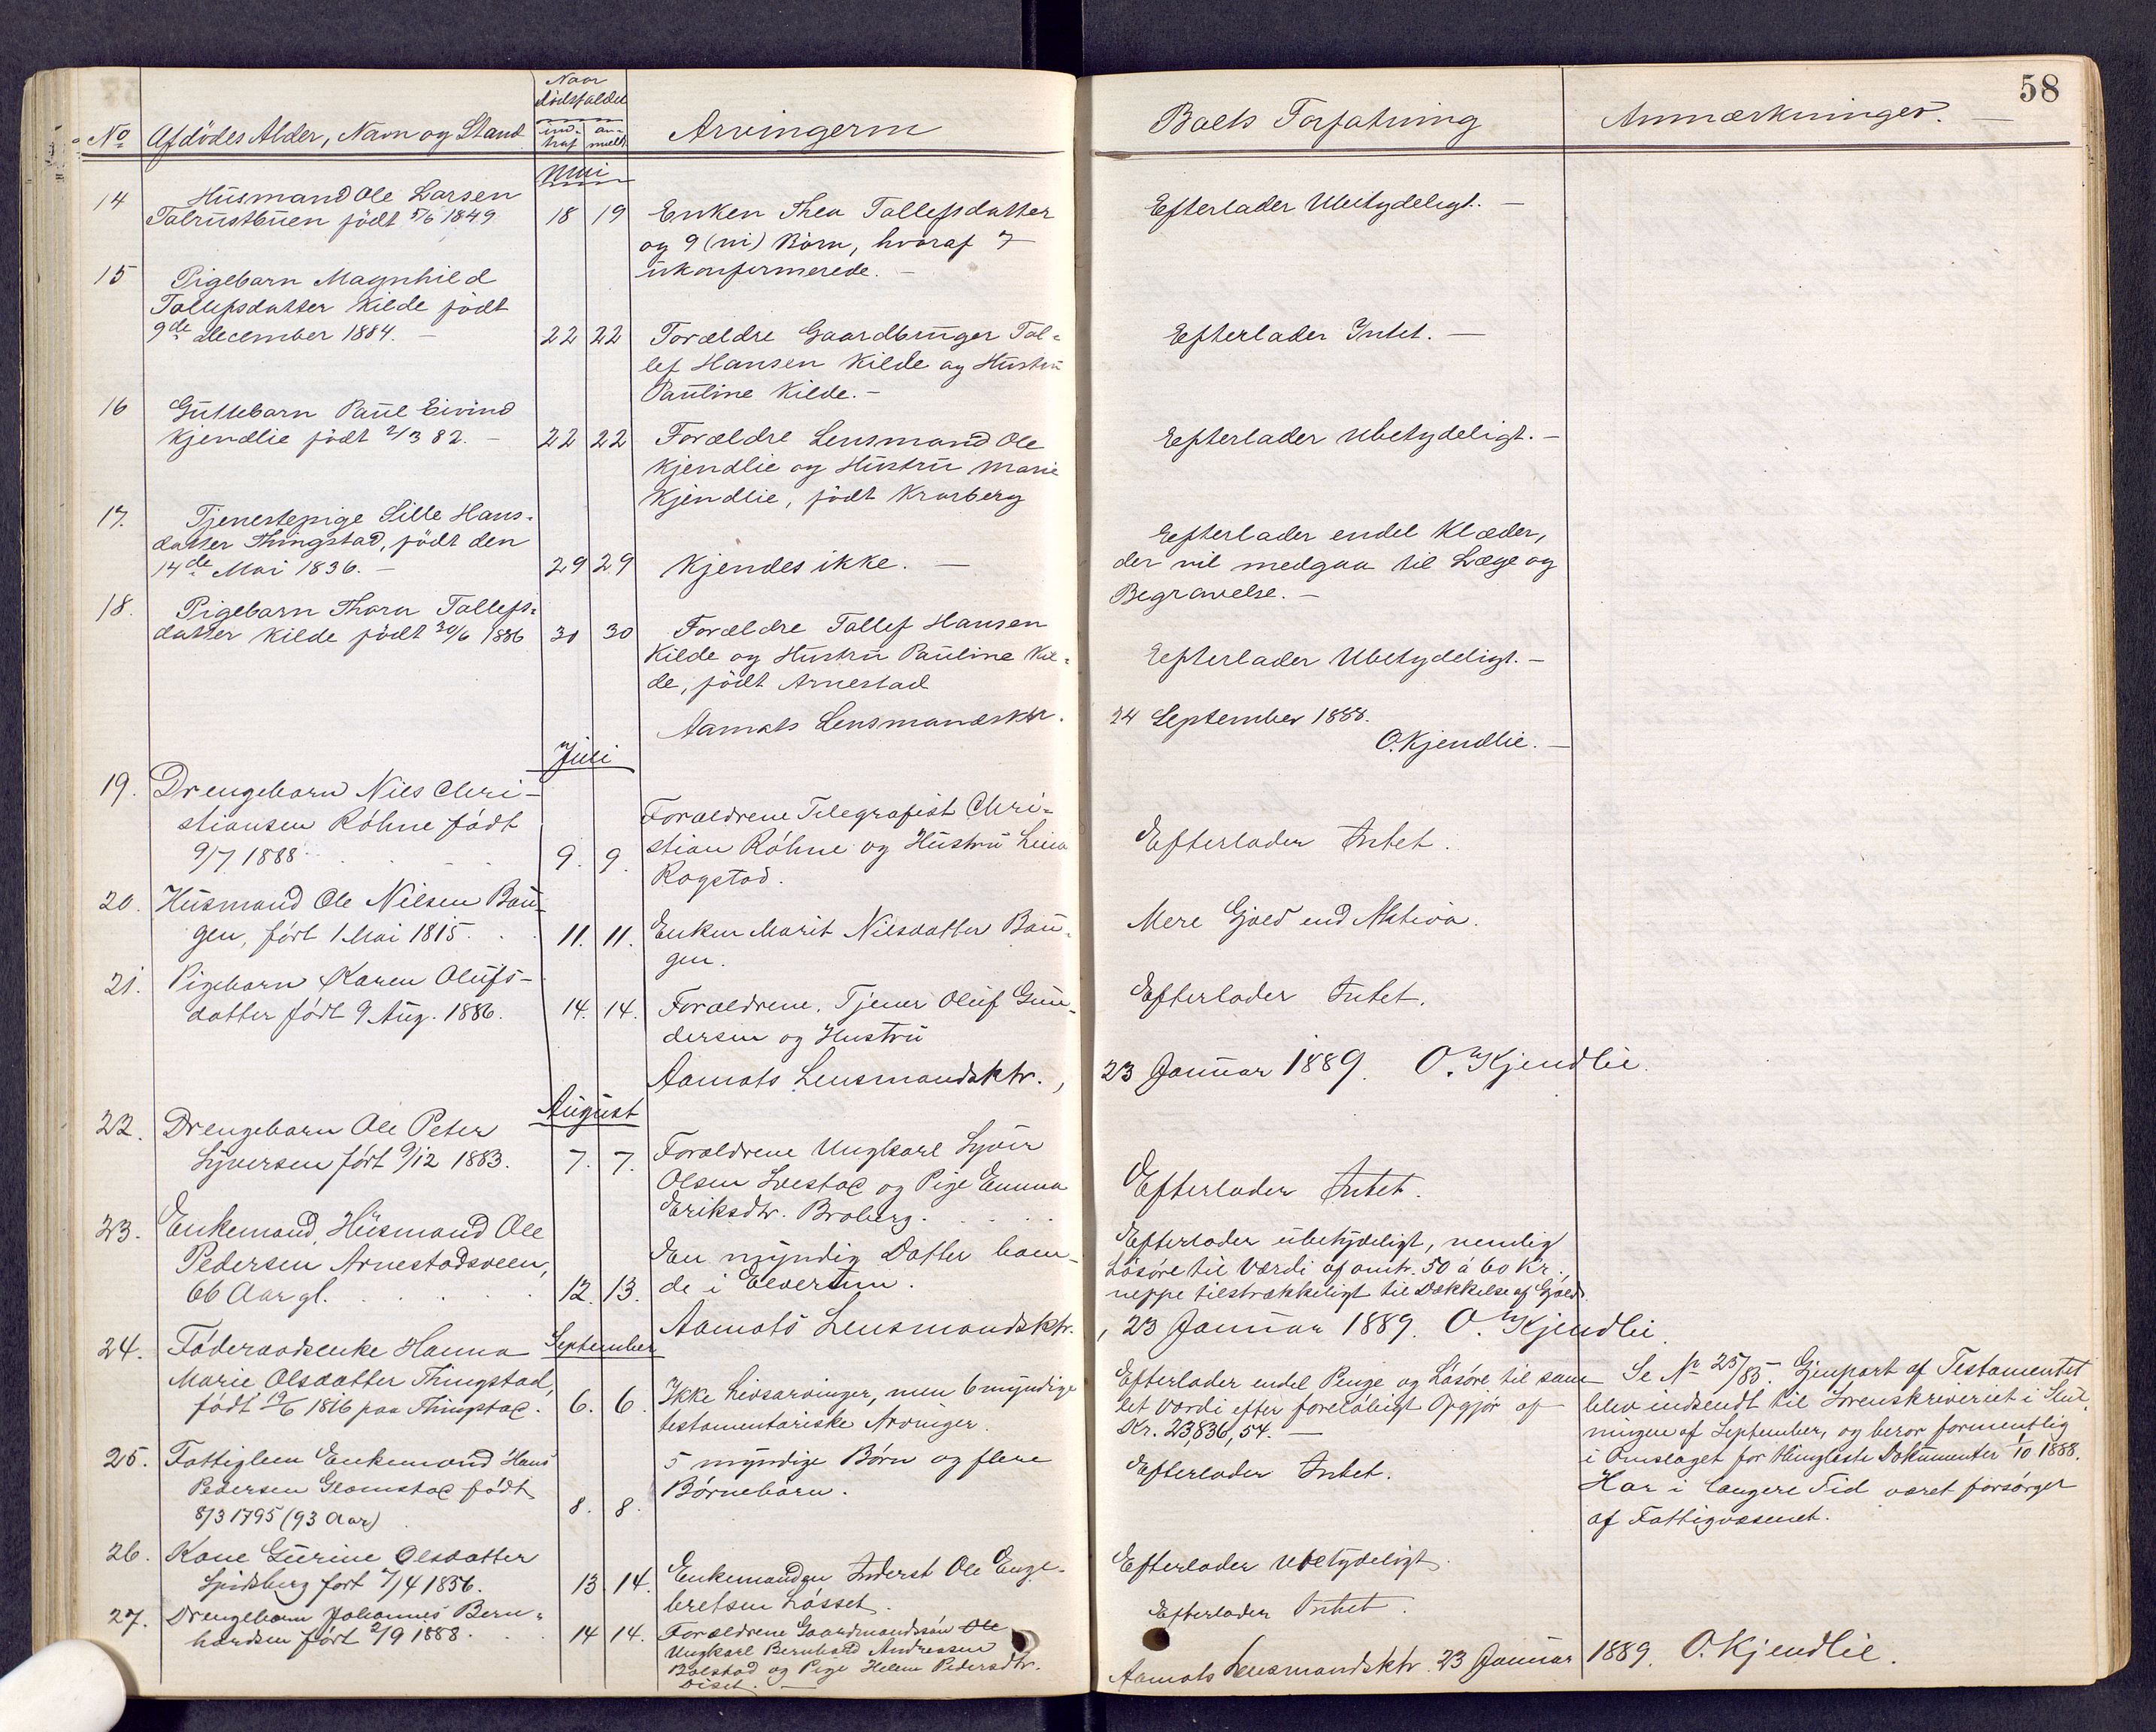 58
Naar
dödsfaldet
No Afdödes Alder, Navn og Stand ind- traf an- meldt Arvingerne Boets Forfatning Anmærkninger.
Mai
14 Husmand Ole Larsen
Talrustbuen födt 5/6 1849 18 19 Enken Thea Tollefsdatter Efterlader Ubetydeligt. —
og 9 (ni) Börn, hvoraf 7
ukonfirmerede. —
15 Pigebarn Magnhild
Tollefsdatter Kilde födt
9de december 1884. — 22 22 Forældre Gaardbruger Tol-
lef Hansen Kilde og Hustru
Pauline Kilde. —
Efterlader Intet. —
16 Guttebarn Paul Eivind
Kjendlie födt 2/3 82. — 22 22 Forældre Lensmand Ole
Kjendlie og Hustru Marie
Kjendlie, födt Krarberg
Efterlader Ubetydeligt. —
17. Tjenestepige Sille Hans-
datter Thingstad, födt den
14de Mai 1836. — 29 29 Kjendes ikke. —
Efterlader endel Klæder,
der vil medgaa til Læge og
Begravelse. —
18. Pigebarn Thora Tollefs-
datter Kilde födt 30/6 1886 30 30 Forældre Tollef Hansen
Kilde og Hustru Pauline Kil-
de, födt Arnestad
Efterlader Ubetydeligt. —
Aamots Lensmandsktr. 24 September 1888.
O. Kjendlie. —
Juli
19. Drengebarn Nils Chri-
stiansen Röhne födt
9/7 1888 9. 9. Forældrene Telegrafist Chri-
stian Röhne og Hustru Lina
Rogstad.
Efterlader Intet.
20. Husmand Ole Nilsen Bau-
gen, født 1 Mai 1815. 11. 11. Enken Marit Nilsdatter Bau-
gen.
Mere Gjæld end Aktiva.
21. Pigebarn Karen Olufs-
datter født 9 Aug. 1886. 14. 14. Forældrene, Tjener Oluf Gun-
dersen og Hustru
Efterlader Intet.
Aamots Lensmandsktr., 23 Januar 1889. O. Kjendlie.
August
22. Drengebarn Ole Peter
Syversen født 9/12 1883. 7. 7. Forældrene Ungkarl Syver
Olsen Løestad og Pige Emma
Eriksdtr. Broberg.
Efterlader Intet.
23. Enkemand, Husmand Ole
Pedersen Arnestadsveen,
66 Aar gl. 12. 13. En myndig Datter boen-
de i Elverum.
Efterlader ubetydeligt, nemlig
Løsøre til Værdi af omtr. 50 à 60 Kr.,
neppe tilstrækkeligt til Dækkelse af Gjæld.
Aamots Lensmandsktr., 23 Januar 1889. O. Kjendlie.
September
24. Føderaadsenke Hanna
Marie Olsdatter Thingstad,
født 19/6 1816 paa Thingstad. 6. 6. Ikke Livsarvinger, men 6 myndige
testamentariske Arvinger.
Efterlader endel Penge og Løsøre til sam-
let Værdi efter foreløbigt Opgjør af
Kr. 23,836,54. —
Se No 25/85. Gjenpart af Testamentet
blev indsendt til Sorenskriveriet i Slut-
ningen af September, og beror formentlig
i Omslaget for thinglæste Dokumenter 1/10 1888.
25. Fattiglem Enkemand Hans
Pedersen Glomstad født
8/3 1795 (93 Aar) 8. 8. 5 myndige Børn og flere
Børnebørn.
Efterlader Intet.
Har i længere Tid været forsørget
af Fattigvæsenet.
26. Kone Gurine Olsdatter
Spidsberg født 7/4 1856. 13. 14. Enkemanden Inderst Ole Enge-
bretsen Løsset.
Efterlader ubetydeligt.
27. Drengebarn Johannes Bern-
hardsen født 2/9 1888. 14 14. Forældrene Gaardmandssøn Ole
Ungkarl Bernhard Andreassen
Bolstad og Pige Helene Pedersdtr.
Diset. —
Efterlader Intet.
Aamots Lensmandsktr. 23 Januar 1889. O. Kjendlie.